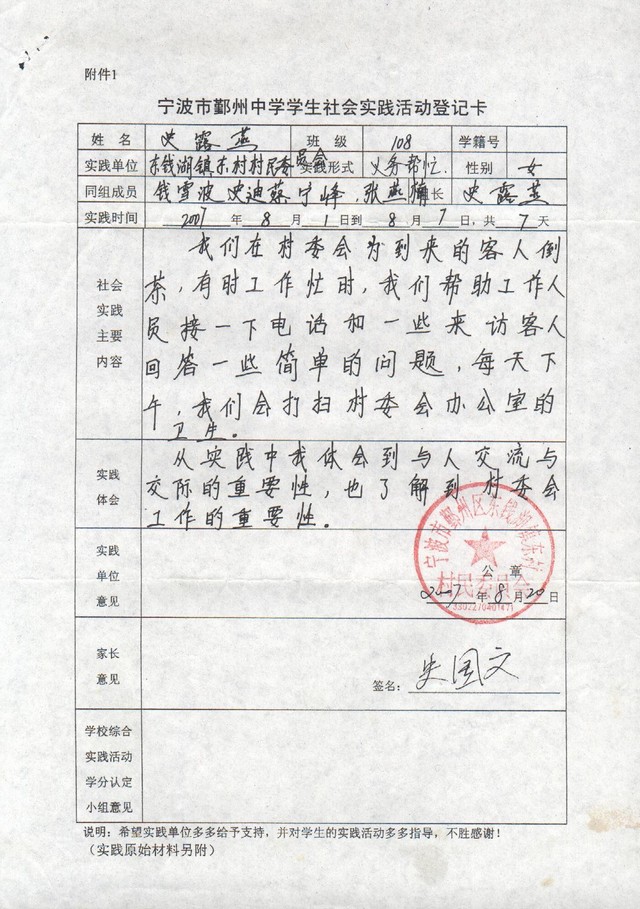 附件1
宁波市鄞州中学学生社会实践活动登记卡
姓 名 史露燕 班 级 108 学籍号
实践单位 东钱湖镇东村村民委员会 实践形式 义务帮忙. 性别 女
同组成员 钱雪波 史迪 峰,张燕 长 史露燕
实践时间 2007 年 8 月 1 日到 8 月 7 日,共 7 天
社会
实践
主要
内容
我们在村委会为到来的客人倒
茶,有时工作忙时,我们帮助工作人
员接一下电话和一些来访客人
回答一些简单的问题,每天下
午,我们会打扫村委会办公室的
卫生。
实践
体会
从实践中我体会到与人交流与
交际的重要性,也了解到村委会
工作的重要性。
实践
单位
意见
宁波市鄞州区东钱湖镇东村
村民委员会
3302270401471
公 章
2007 年 8 月 20 日
家长
意见
签名: 史国文
学校综合
实践活动
学分认定
小组意见
说明:希望实践单位多多给予支持,并对学生的实践活动多多指导,不胜感谢!
(实践原始材料另附)